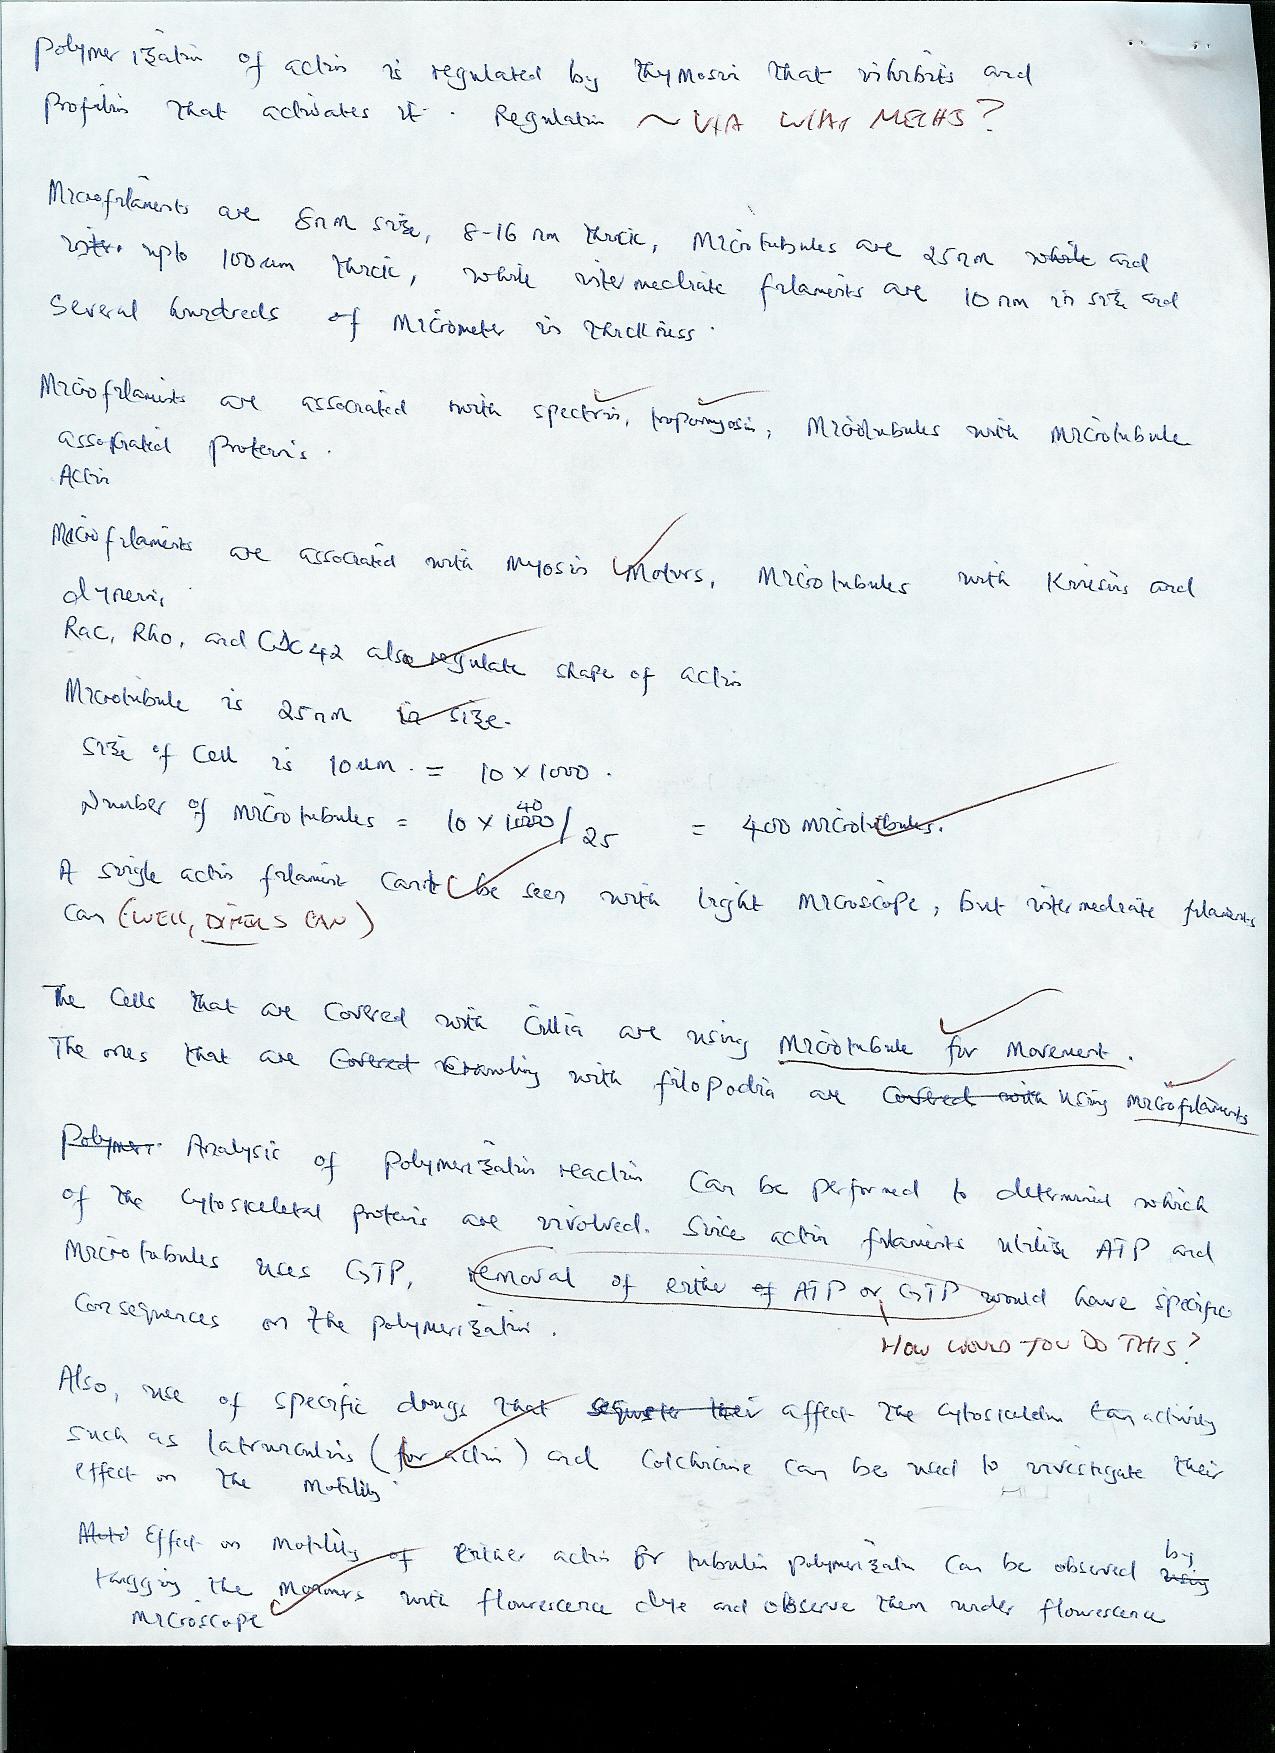 Polymerization of actin is regulated by thymosin that inhibits and
Profilin that activates it. Regulation ~ VIA WHAT MECHS?
Microfilaments are 8nm size, 8-16 nm thick, Microtubules are 25nm while and
upto 100um thick, while intermediate filaments are 10 nm in size and
Several hundreds of Micrometer in thickness.
Microfilaments are associated with spectrin, tropomyosin, Microtubules with microtubule
associated Proteins.
Actin
Microfilaments are associated with Myosin Motors, Microtubules with Kinesins and
dynein,
Rac, Rho, and CDC42 also regulate shape of actin
Microtubule is 25nm in size.
Size of cell is 10um. = 10 x 1000.
Number of microtubules = 10 x 1000 40 / 25 = 400 microtubules.
A single actin filament can't be seen with light microscope, but intermediate filaments
can (WELL, DIMERS CAN)
The Cells that are covered with Cillia are using Microtubule for Movement.
The ones that are Covered Crawling with filopodia are Covered with using microfilaments
Polymer. Analysis of Polymerization reaction can be performed to determine which
of the cytoskeletal proteins are involved. Since actin filaments utilise ATP and
Microtubules uses GTP, removal of either of ATP or GTP would have specific
consequences on the polymerization.
HOW WOULD YOU DO THIS?
Also, use of specific drugs that sequester their affect the cytoskeleton activity
such as latrunculins (for actin) and Colchicine can be used to investigate their
effect on the Motility
Effect on Motility of either actin or tubulin polymerization can be observed using by
tangging the Monomers with flourescence dye and observe them under flourescence
Microscope